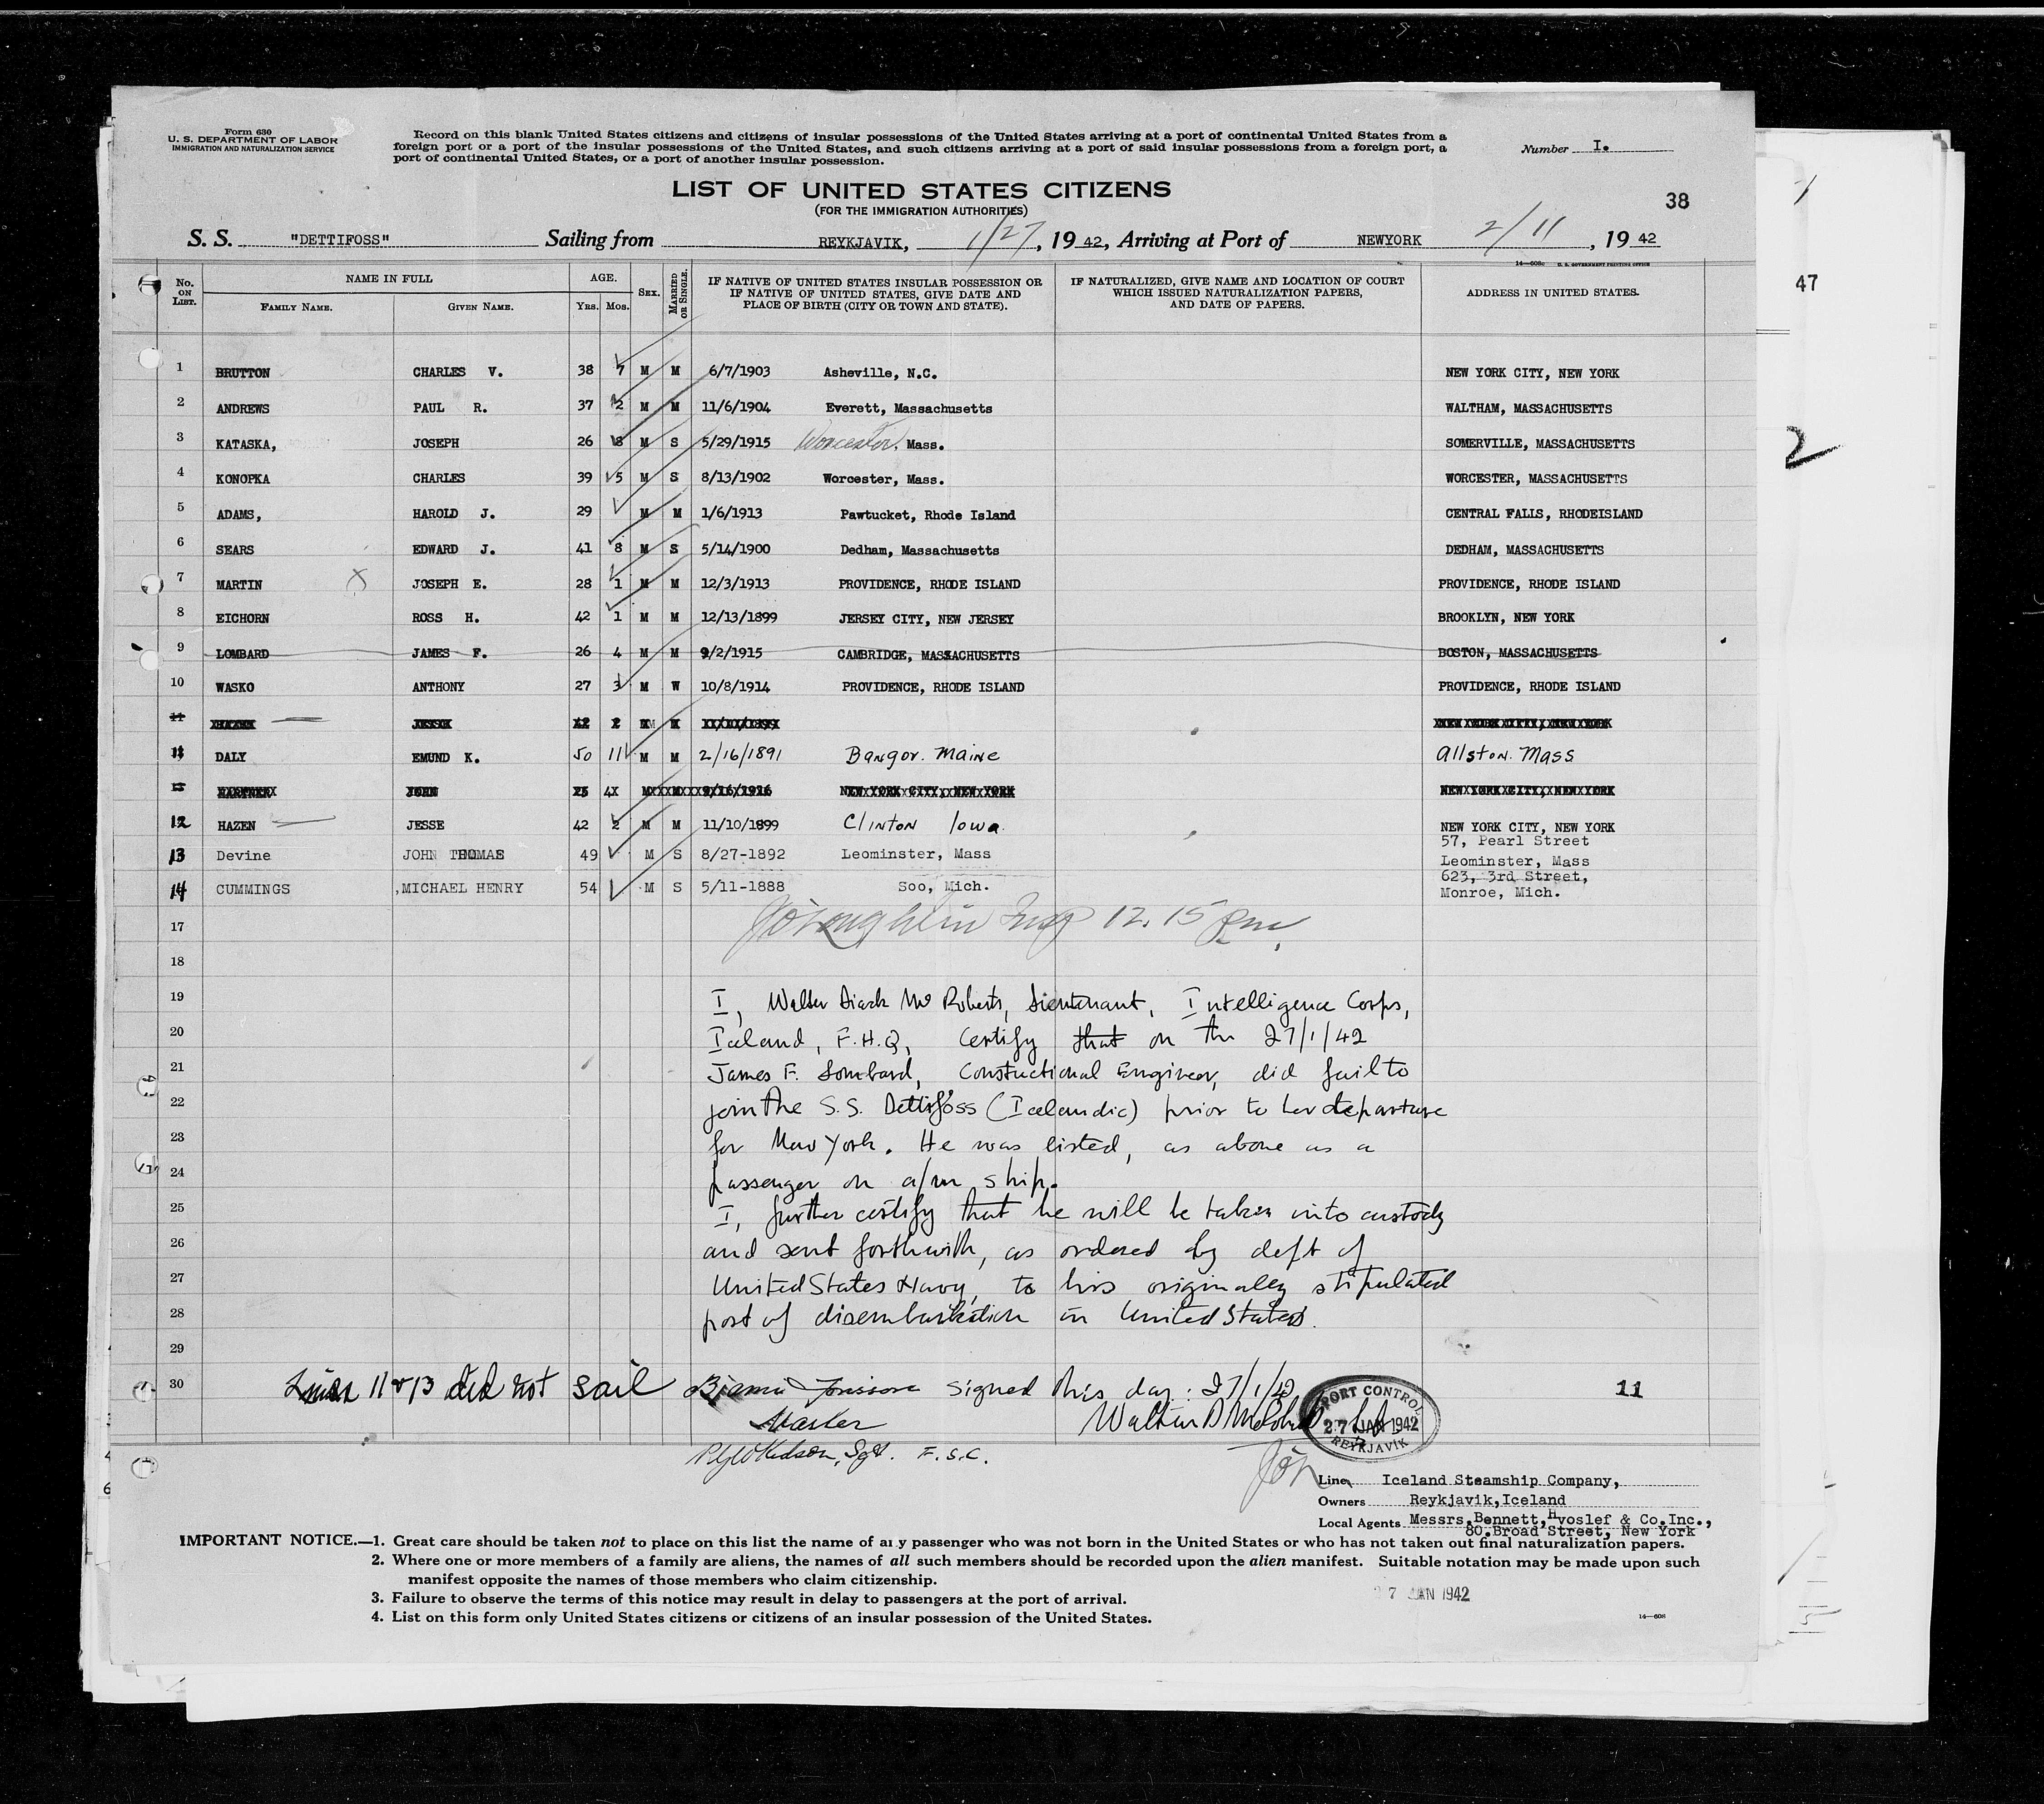 Form 630
U. S. DEPARTMENT OF LABOR
IMMIGRATION AND NATURALIZATION SERVICE
Record on this blank United States citizens and citizens of insular possessions of the United States arriving at a port of continental United States from a
foreign port or a port of the insular possessions of the United States, and such citizens arriving at a port of said insular possessions from a foreign port, a
port of continental United States, or a port of another insular possession.
Number I.
LIST OF UNITED STATES CITIZENS
(FOR THE IMMIGRATION AUTHORITIES)
38
S. S. "DETTIFOSS" Sailing from REYKJAVIK, 1/27, 1942, Arriving at Port of NEWYORK 2/11, 1942
14—608c U. S. GOVERNMENT PRINTING OFFICE
47
No. ON LIST. NAME IN FULL AGE. SEX. MARRIED OR SINGLE. IF NATIVE OF UNITED STATES INSULAR POSSESSION OR IF NATIVE OF UNITED STATES, GIVE DATE AND PLACE OF BIRTH (CITY OR TOWN AND STATE). IF NATURALIZED, GIVE NAME AND LOCATION OF COURT WHICH ISSUED NATURALIZATION PAPERS, AND DATE OF PAPERS. ADDRESS IN UNITED STATES.
FAMILY NAME. GIVEN NAME. Yrs. Mos.
1 BRUTTON CHARLES V. 38 7 M M 6/7/1903 Asheville, N.C. NEW YORK CITY, NEW YORK
2 ANDREWS PAUL R. 37 2 M M 11/6/1904 Everett, Massachusetts WALTHAM, MASSACHUSETTS
2
3 KATASKA, JOSEPH 26 8 M S 5/29/1915 Worcester, Mass. SOMERVILLE, MASSACHUSETTS
4 KONOPKA CHARLES 39 5 M S 8/13/1902 Worcester, Mass. WORCESTER, MASSACHUSETTS
5 ADAMS, HAROLD J. 29 M M 1/6/1913 Pawtucket, Rhode Island CENTRAL FALLS, RHODEISLAND
6 SEARS EDWARD J. 41 8 M S 5/14/1900 Dedham, Massachusetts DEDHAM, MASSACHUSETTS
7 MARTIN X JOSEPH E. 28 1 M M 12/3/1913 PROVIDENCE, RHODE ISLAND PROVIDENCE, RHODE ISLAND
8 EICHORN ROSS H. 42 1 M M 12/13/1899 JERSEY CITY, NEW JERSEY BROOKLYN, NEW YORK
9 LOMBARD JAMES F. 26 4 M M 9/2/1915 CAMBRIDGE, MASSACHUSETTS BOSTON, MASSACHUSETTS
10 WASKO ANTHONY 27 3 M W 10/8/1914 PROVIDENCE, RHODE ISLAND PROVIDENCE, RHODE ISLAND
11 HAZEN JESSE 42 2 M M 11/10/1899 NEW YORK CITY, NEW YORK
11 DALY EMUND K. 50 11 M M 2/16/1891 Bangor. Maine Allston. Mass
13 JOHN 25 4X M M 9/16/1916 NEW YORK CITY, NEW YORK NEW YORK CITY, NEW YORK
12 HAZEN JESSE 42 2 M M 11/10/1899 Clinton Iowa. NEW YORK CITY, NEW YORK
13 Devine JOHN THOMAS 49 M S 8/27-1892 Leominster, Mass 57, Pearl Street
Leominster, Mass
14 CUMMINGS ,MICHAEL HENRY 54 M S 5/11-1888 Soo, Mich. 623, 3rd Street,
Monroe, Mich.
17 J O'Loughlin Insp 12.15 pm.
18
19 I, Walter Mc Roberts, Lieutenant, Intelligence Corps,
20 Iceland, F.H.Q, Certify that on the 27/1/42
21 James F. Lombard, Constuctional Engineer, did fail to
22 join the S.S. Dettifoss (Icelandic) prior to her departure
23 for New York. He was listed, as above as a
24 passenger on a/m ship.
25 I, further certify that he will be taken into custody
26 and sent forthwith, as ordered by dept of
27 United States Navy, to his originally stipulated
28 port of disembarkation in United States.
29
30 Lines 11 & 13 did not sail Bjarni Jonsson signed this day: 27/1/42 11
Master Walter D McRoberts Lt.
PORT CONTROL
27 JAN 1942
REYKJAVIK
Sgt. F.S.C.
Line Iceland Steamship Company,
Owners Reykjavik,Iceland
Local Agents Messrs.Bennett,Hvoslef & Co.Inc.,
80.Broad Street, New York
IMPORTANT NOTICE.—1. Great care should be taken not to place on this list the name of any passenger who was not born in the United States or who has not taken out final naturalization papers.
2. Where one or more members of a family are aliens, the names of all such members should be recorded upon the alien manifest. Suitable notation may be made upon such
manifest opposite the names of those members who claim citizenship.
3. Failure to observe the terms of this notice may result in delay to passengers at the port of arrival.
27 JAN 1942
4. List on this form only United States citizens or citizens of an insular possession of the United States.
14—608